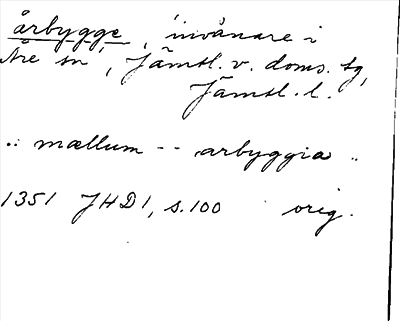 årbygge, 'invånare i
Åre sn', Jämtl. v. doms. tg,
Jämtl. l.
.. mællum -- arbyggia ..
1351 JHD 1, s. 100 orig.